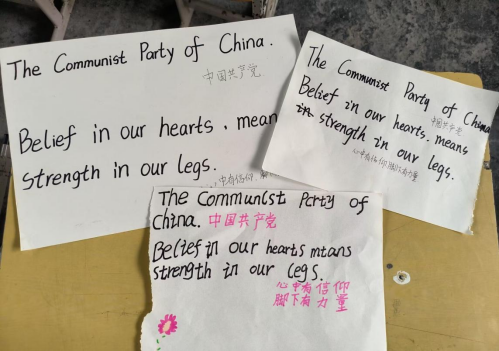 The Communist Party of China.
中国共产党
Belief in our hearts, mean
strength in our legs.
中有信仰,
The Communist Party of China
中国共产党
Belief in our hearts, means
in strength in our legs.
心中有信仰脚下有力量
The Communist Party of
China. 中国共产党
Belief in our hearts means
strength in our legs.
心中有信仰
脚下有力量